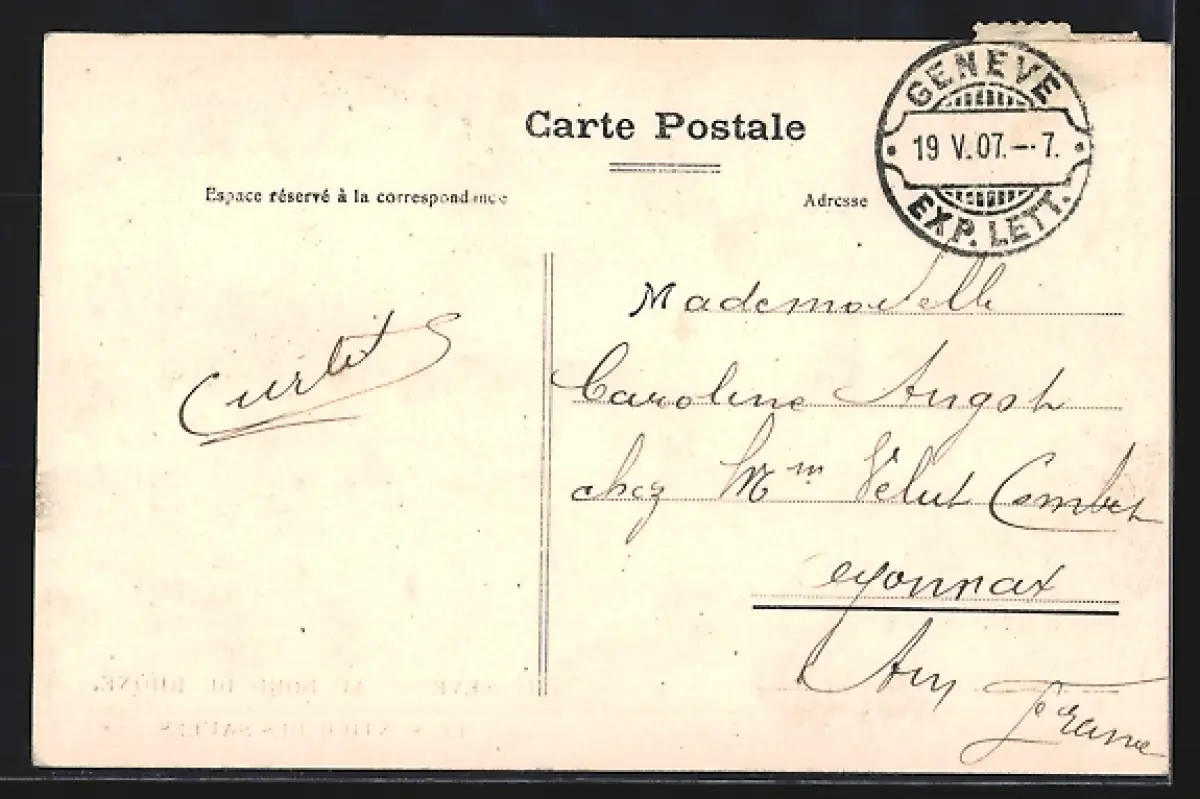 Carte Postale
Espace réservé à la correspondance
Adresse
GENEVE
19 V.07.—7.
EXP. LETT.
Mademoiselle
Caroline Angst
chez Mm Velut Combet
oyonnax
Ain
France
Curtet